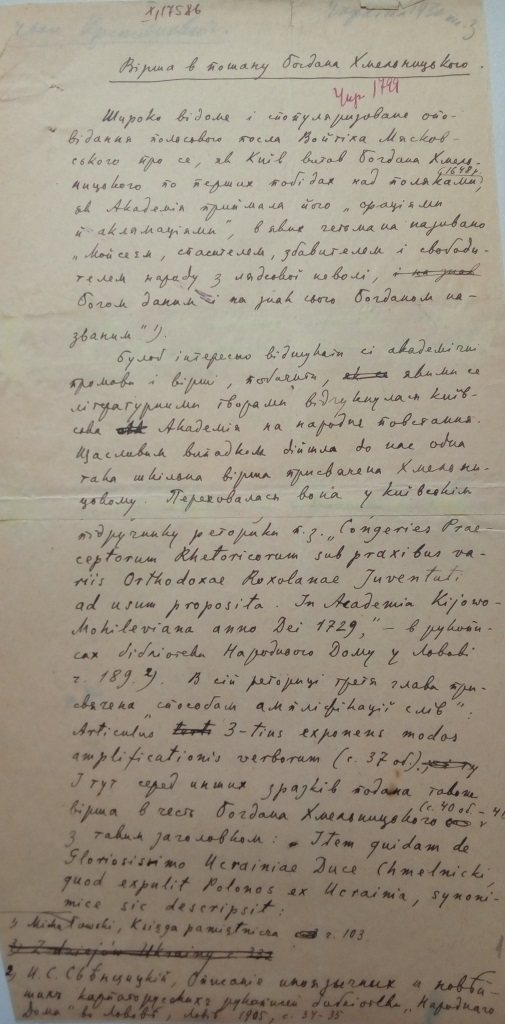 X, 17586
Вірша в пошану Богдана Хмельницького.
Чир 1799
Широко відоме і спопуляризоване опо-
відання польсового посла Войтіха Мясков-
ського про се, як Київ витав Богдана Хмель-
ницького по перших побідах над поляками, (1648 р.
як Академія приймала його „ораціями
й аклямаціями", в яких гетьмана називано
„Мойсеєм, спасителем, збавителем і свободи-
телем народу з лядської неволі, і на знак
Богом даним і на знак сього Богданом на-
званим" ¹).
Було б інтересно відшукати сі академічні
промови і вірші, побачити, якими се
літературними творами відгукнулась київ-
ська Академія на народне повстання.
Щасливим випадком дійшла до нас одна
така шкільна вірша присвячена Хмельни-
цькому. Переховалась вона у київськім
підручнику реторики п. з. „Congeries Prae-
ceptorum Rhetoricorum sub praxibus va-
riis Orthodoxae Roxolanae Juventuti
ad usum proposita. In Academia Kijowo-
Mohileviana anno Dei 1729," – в рукопи-
сах бібліотеки Народного Дому у Львові
г. 189. ²). В сій реториці третя глава при-
свячена „способам ампліфікації слів":
Articulus 3-tius exponens modos
amplificationis verborum (с. 37 об.).
І тут серед инших зразків подана також
вірша в честь Богдана Хмельницького (с. 40 об. – 41
з таким заголовком: Item quidam de
Gloriosissimo Ucrainiae Duce Chmelnicki,
quod expulit Polonos ex Ucrainia, synoni-
mice sic descripsit:
¹) Michałowski, Księga pamiętnicza г. 103.
²) Z dziejów Ukrainy с. 332
2) И. С. Свѣнцицкій, Описаніе иноязычных и новѣй-
ших карпаторусскихъ рукописей библіотеки „Народнаго
Дома" въ Львовѣ, Львів 1905, с. 34-35
1